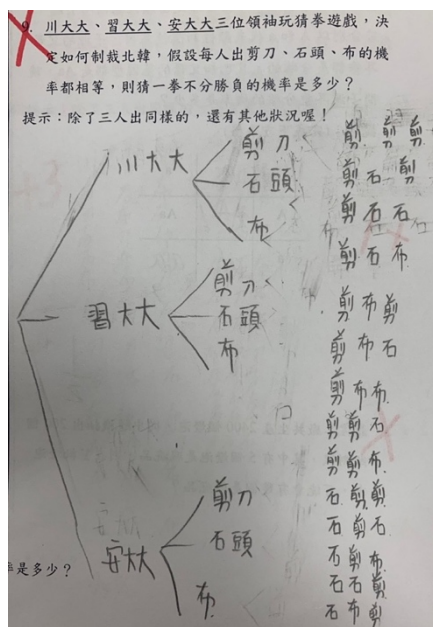 9. 川大大、習大大、安大大三位領袖玩猜拳遊戲，決
定如何制裁北韓，假設每人出剪刀、石頭、布的機
率都相等，則猜一拳不分勝負的機率是多少？
提示：除了三人出同樣的，還有其他狀況喔！
川大大
剪刀
石頭
布
習大大
剪刀
石頭
布
安大大
剪刀
石頭
布
率是多少？
剪 剪 剪
剪 石 剪
剪 石 石
剪 石 布
剪 布 剪
剪 布 石
剪 布 布
剪 剪 石
剪 剪 布
石 剪 剪
石 剪 石
石 剪 布
石 石 剪
石 布 剪